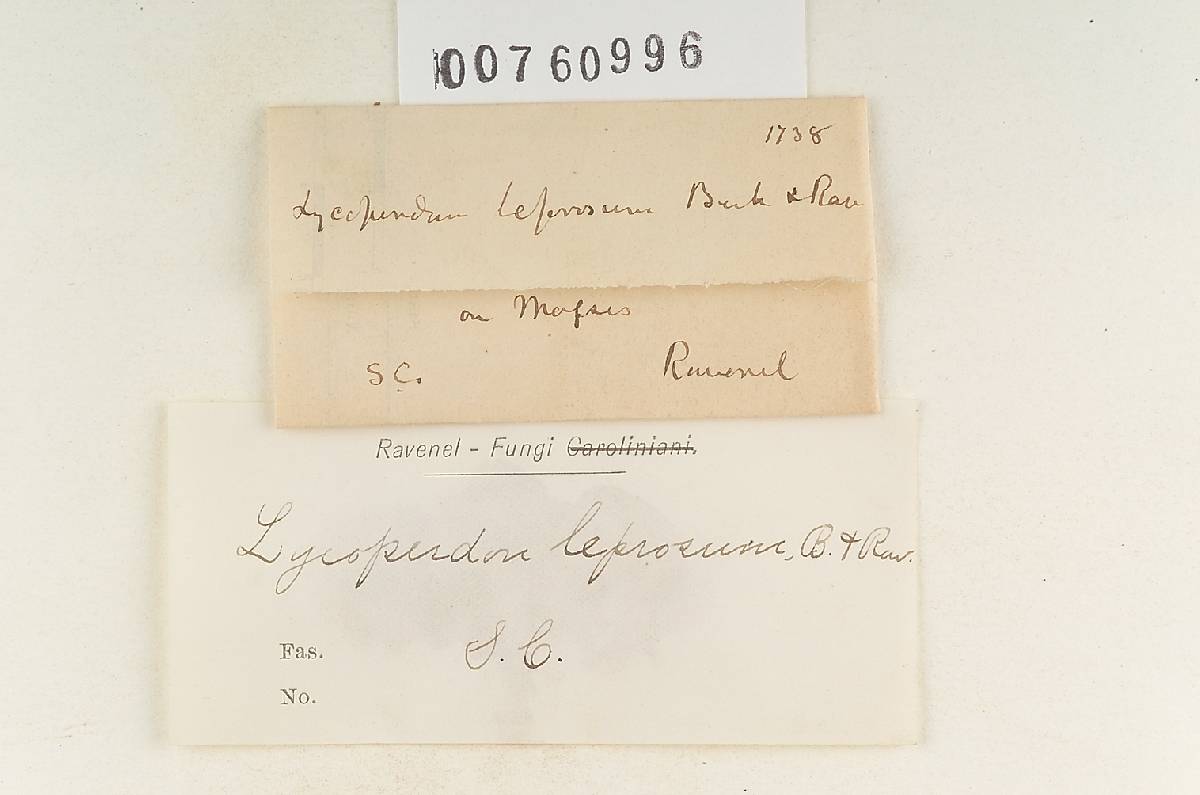 00760996
1738
Lycoperdon leprosum Berk & Rav
on Mosses
S C.
Ravenel
Ravenel - Fungi Caroliniani.
Lycoperdon leprosum, B. & Rav.
Fas.
S. C.
No.